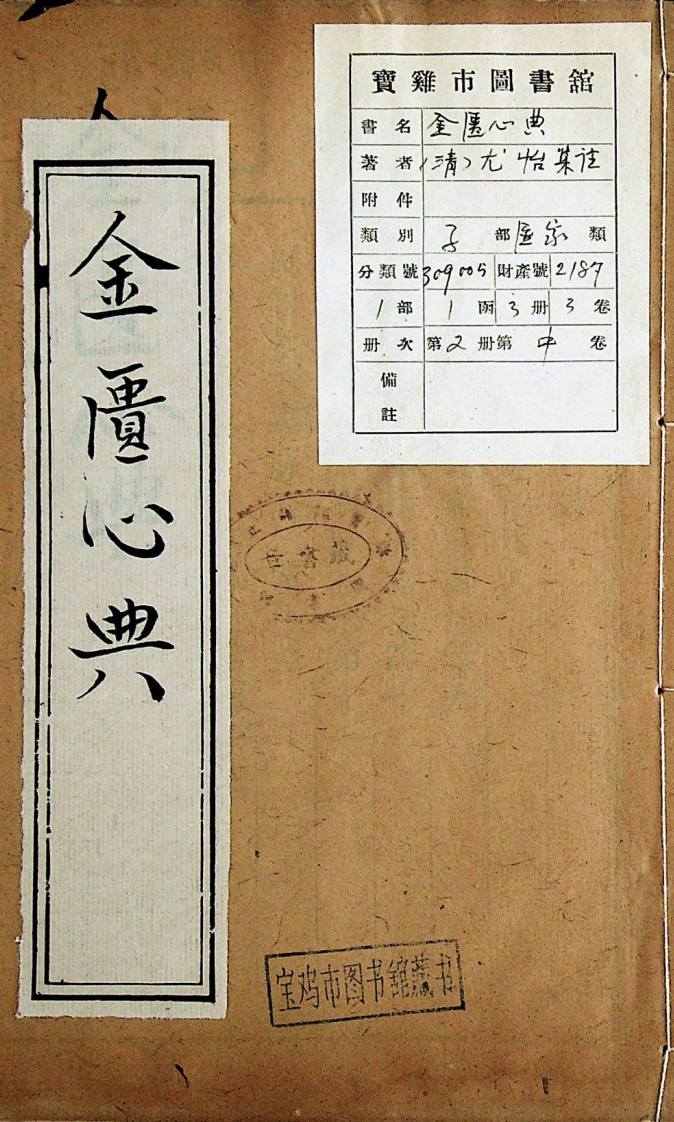 金匱心典
寶雞市圖書舘
書名 金匱心典
著者 (清)尤怡集註
附件
類別 子部医家類
分類號 309005 財產號 2187
1部 1函 3册 3卷
册次 第2册第中卷
備註
宝鸡市图书馆藏书